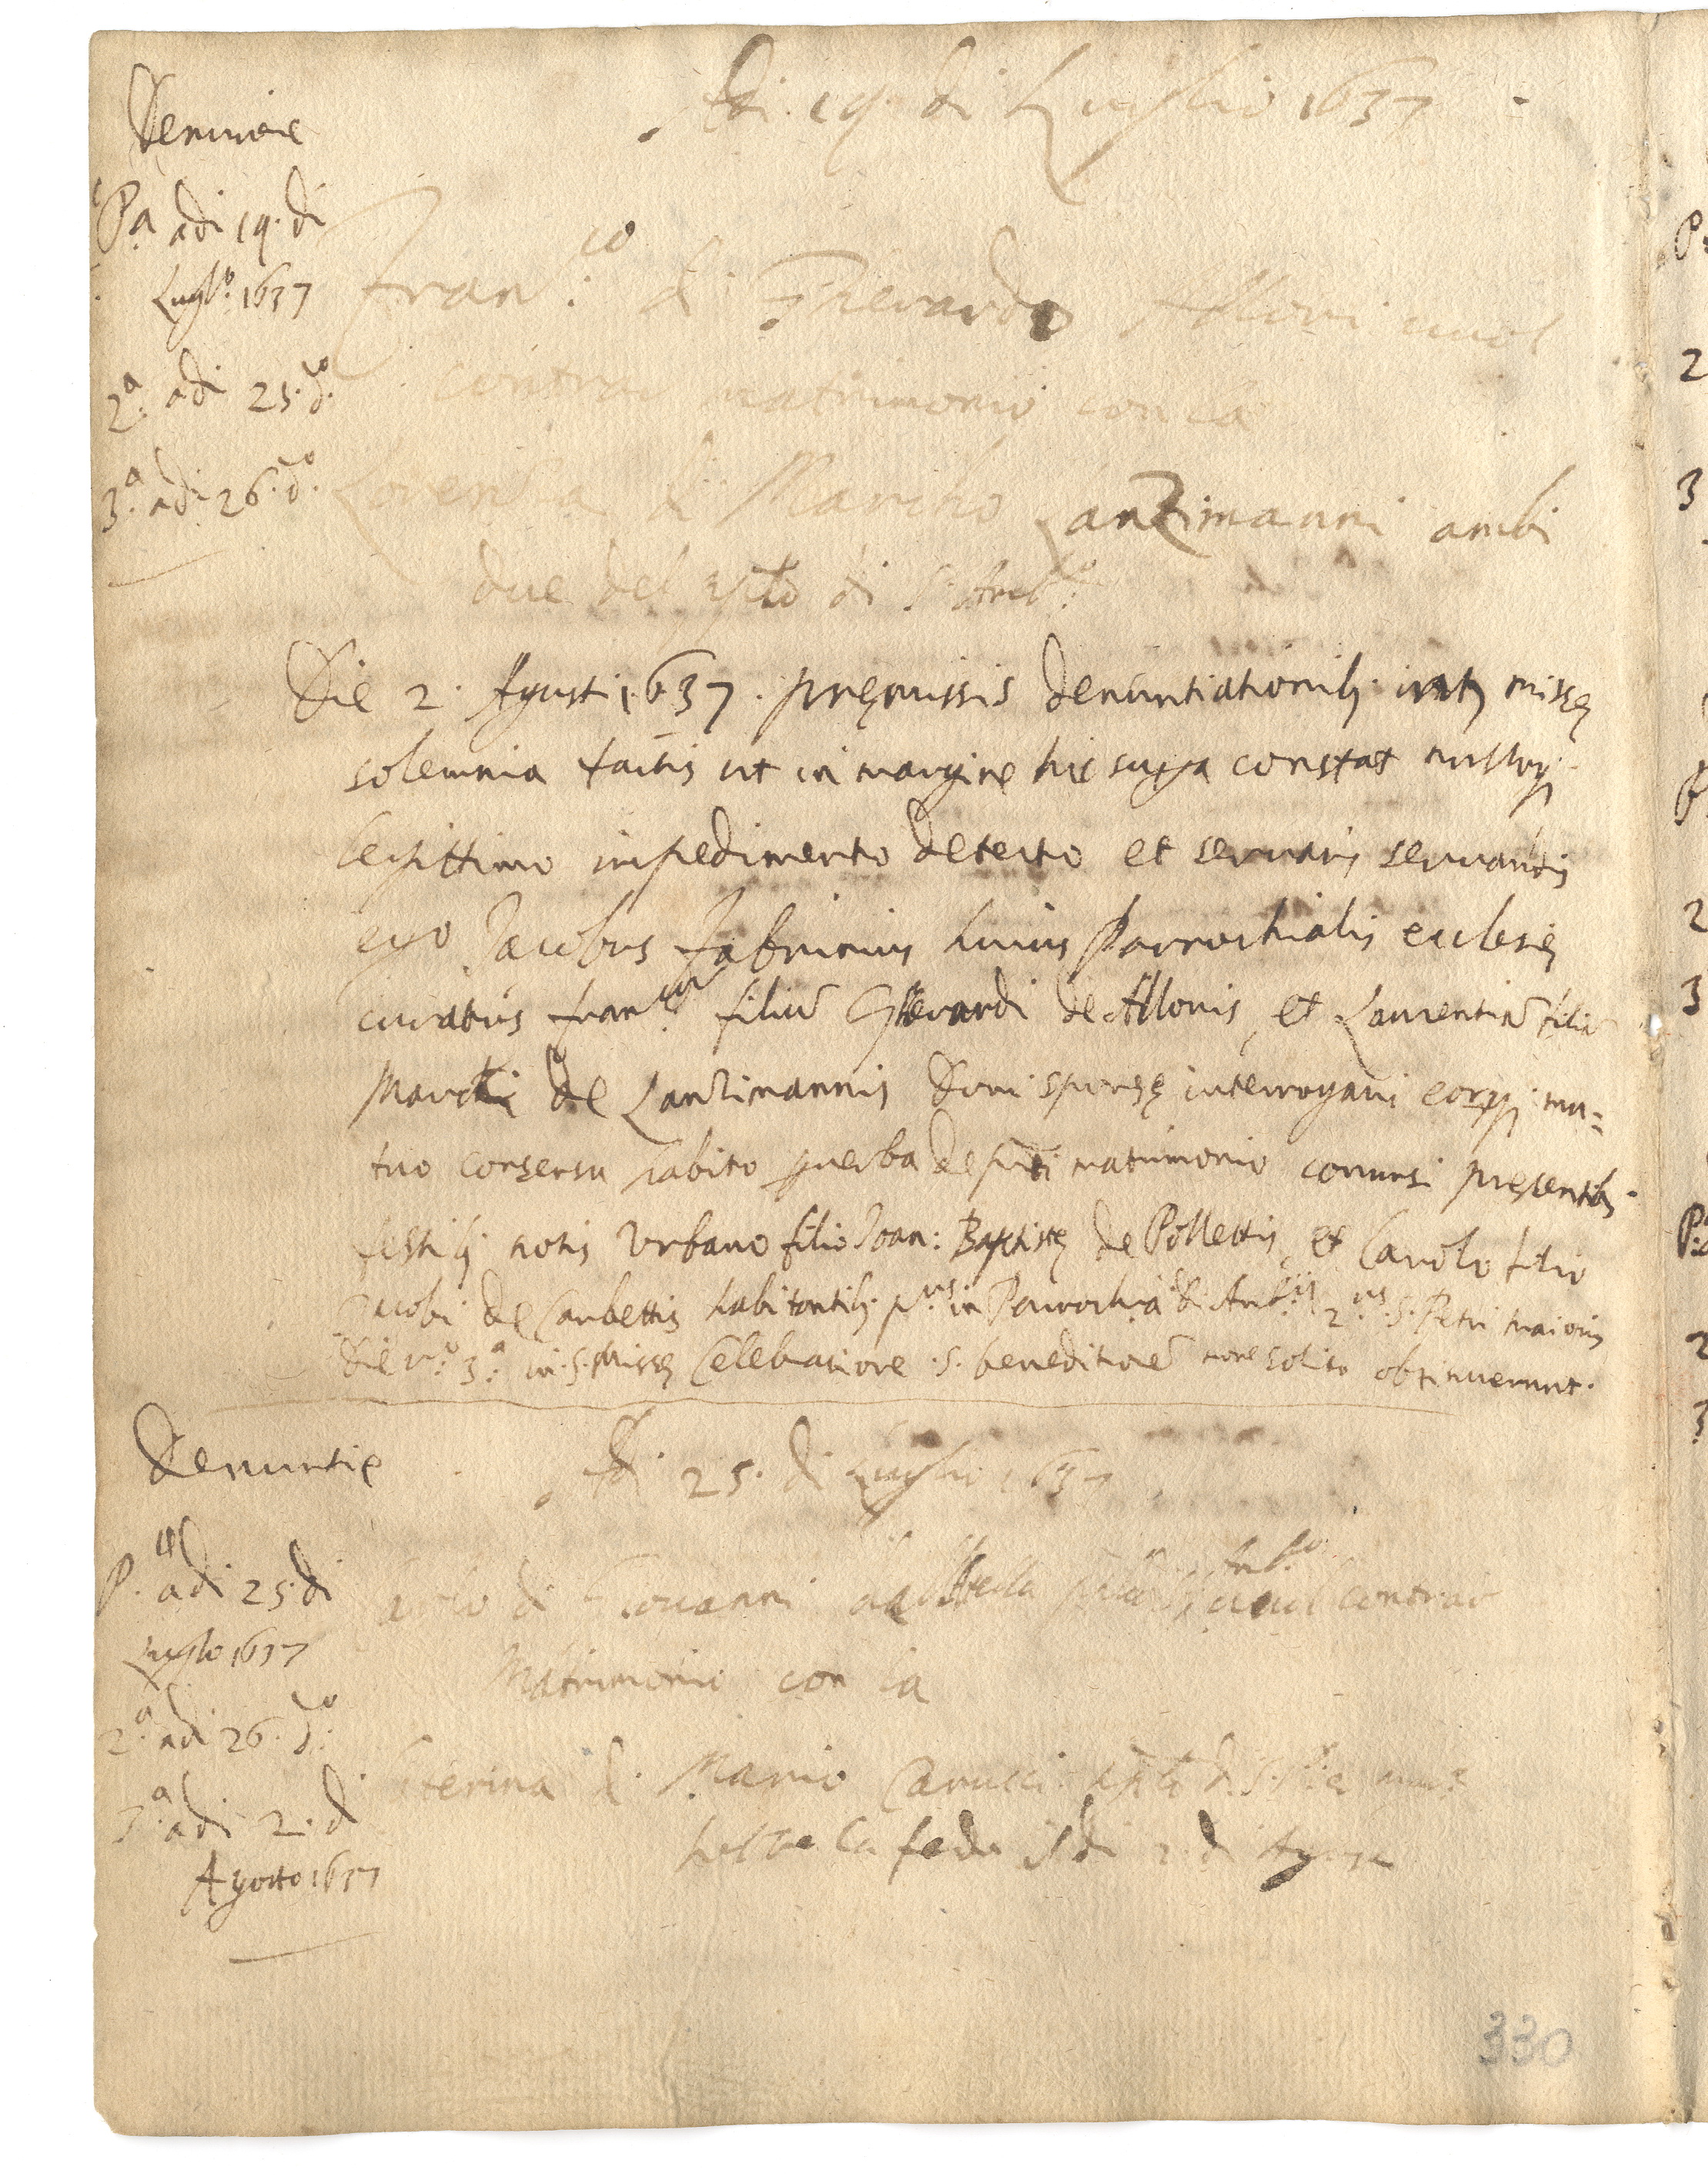 Adi. 19. di Luglio 1637
Denuncie
P.a adi 19. di
Lugl.o 1637
2.a adi 25. d.o
3.a adi 26. d.o
Fran.co di Gherardo Alloni vuol
contrar matrimonio con la
Lorenza di Marcho Lanzimanni ambi
due del pp.to di S. Amb.o
Die 2. Agusti 1637. premissis denuntiationib. intr missę
solemnia factis ut in margine hic supra constat nulloq.
legittimo impedimento detecto et servatis servandis
ego Jacobus Fabricius huius Parrochialis eclesię
curatus Fran.cum filiũ Gherardi de Allonis, et Laurentiã filiã
Marchi de Lanzimannis Domi sponsę interrogavi eorq. mu=
tuo consensu habito p verba de pnti matrimonio coniunsi presentib.
testib. notis Urbano filio Joan: Baptistę de Pollettis, et Carolo filio
Jacobi de Carbettis habitantib. p.us in Parrochia S.ti Amb.ii 2.us S. Petri maioris
Die v.o 3.a in S. Missę Celebratione S. beneditionẽ more solito obtinuerunt.
Denuntie
Adi 25. di Luglio 1637
P.a adi 25. di
Luglio 1637
2.a adi 26. d.o
3.a adi 2. di
Agosto 1637
Carlo di Giovanni vuol contrar
Matrimonio con la
Caterina di Mario Carucci
hebbe la fede il di 2. di Agosto
330